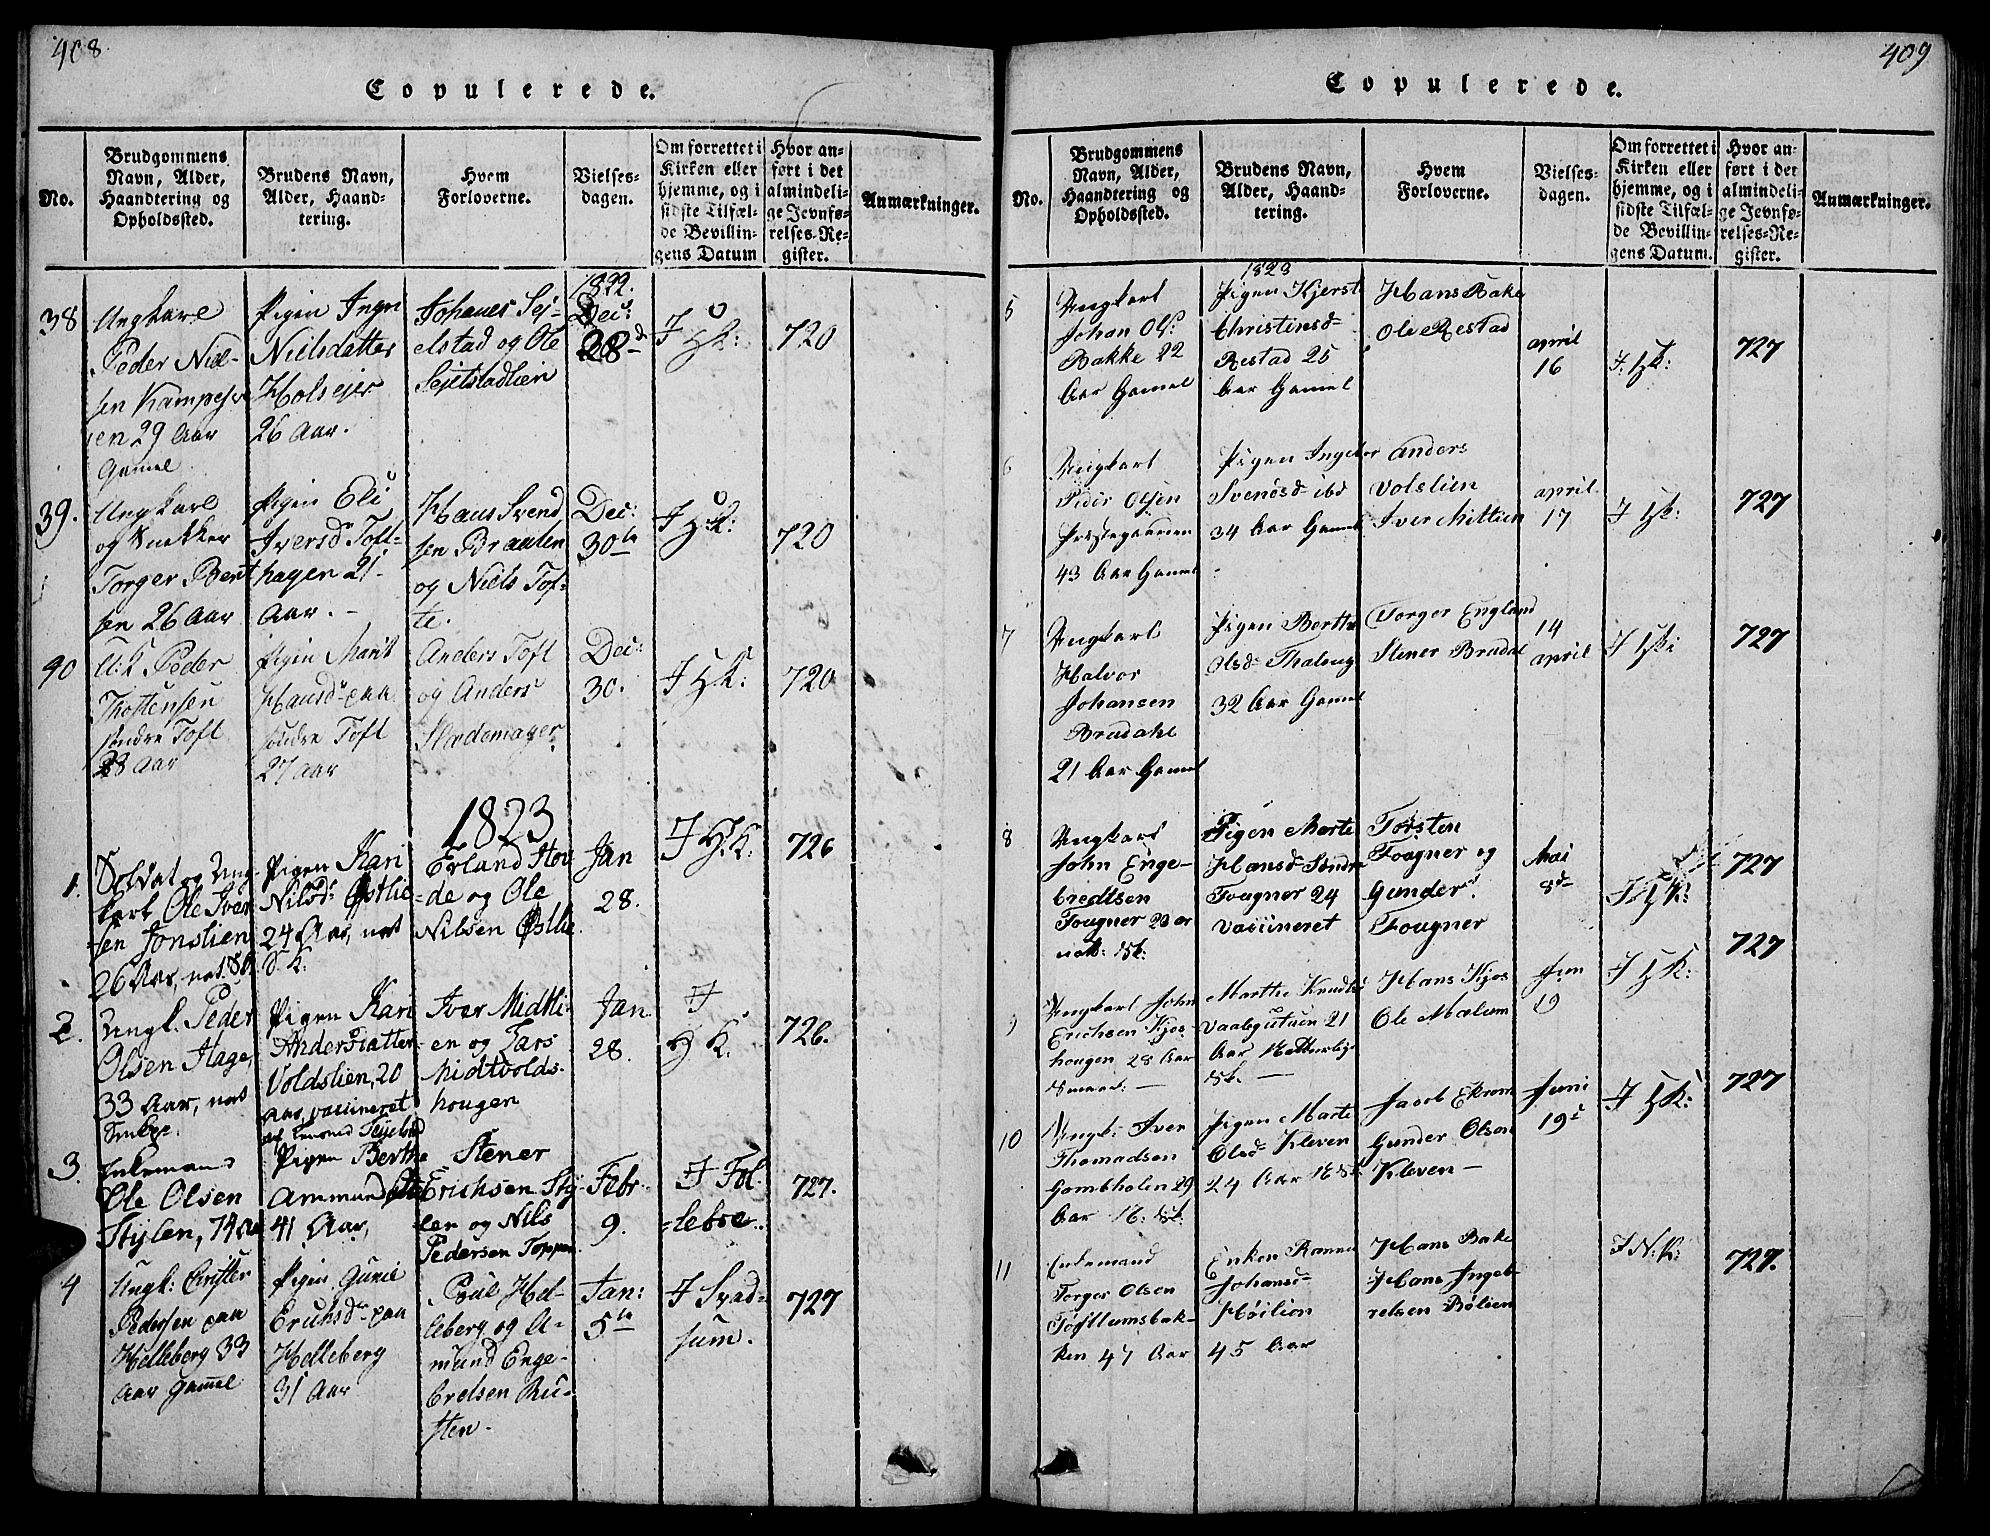 408
Copulerede.
No.
Brudgommens
Navn, Alder,
Haandtering og
Opholdssted.
Brudens Navn,
Alder, Haand-
tering.
Hvem
Forloverne.
Vielses-
dagen.
Om forrettet i
Kirken eller
hjemme, og i
sidste Tilfæl-
de Bevillin-
gens Datum
Hvor an-
ført i det
almindeli-
ge Jevnfø-
relses-Re-
gister.
Anmærkninger.
38
Ungkarl
Peder Niel-
sen
en 29 Aar
Gamel
Pigen Ingri
Nielsdatter
Holsejer
26 Aar.
Johanes Sej-
elstad og Ole
Sejelstadlien
1822.
Dec:
28
I H K:
720
39.
Ungkarl
og Snekker
Torger Bent
sen 26 Aar
Pigen Eli
Iversd Toft-
hagen 21
Aar. -
Hans Svend
sen Braaten
og Niels Tof-
te.
Dec:
30te
I H K:
720
40
U:K Peder
Thostensen
søndre Toft
28 Aar
Pigen Marit
Hansd paa
søndre Toft
27 aar
Anders Toft
og Anders
Slædemager
Dec:
30.
I H K:
720
1823
1.
Soldat og Ung-
karl Ole Iver
sen Jonslien
26 Aar, nat. Sk.
Pigen Kari
Nilsd: Østlie
24 Aar, nat
S. K:
Erland Hov
de og Ole
Nilsen Østlie
Jan
28.
I H. K:
726
2.
Ungk. Peder
Olsen Hage,
33 Aar, nat
Smkpe.
Pigen Kari
Andersdatter
Voldslien, 20
Aar, vaccineret
af Lensmd Sejelstad
Iver Midtli-
en og Lars
Midtvolds-
hougen
Jan
28.
I
H K.
726.
3.
Enkemand
Ole Olsen
Stylen, 74 Aar
Pigen Berthe
Ammunds
41 Aar,
Stener
Erichsen Sty-
len og Nils
Pedersen Toppen
Febr.
9.
I Fol-
lebse.
727.
4
Ungk: Christen
Pedersen paa
Helleberg 33
Aar Gamel
Pigen Gunil
Erichsdr paa
Helleberg
31 Aar
Poul Hel-
leberg og A-
mund Enge-
bretsen Ru-
sten.
Jan:
5te
I Svad-
sum.
727
409
Copulerede.
No.
Brudgommens
Navn, Alder,
Haandtering og
Opholdssted.
Brudens Navn,
Alder, Haand-
tering.
Hvem
Forloverne.
Vielses-
dagen.
Om forrettet i
Kirken eller
hjemme, og i
sidste Tilfæl-
de Bevillin-
gens Datum.
Hvor an-
ført i det
almindeli-
ge Jevnfø-
relses-Re-
gister.
Anmærkninger.
5
Ungkarl
Johan Ols:
Bakke 22
Aar Gamel
1823
Pigen Kjerst
Christensd-
Restad 25
Aar Gamel
Hans Bake
Ole Restad
april
16
I: H K:
727
6
Ungkarl
Peder Olsen
Prestegaarden
43 Aar Gamel
Pigen Ingebor
Svensd ibd
34 Aar Gamel
Anders
Volslien
Iver Mitlien
april
17
I H K:
727
7
Ungkarl
Halvor
Johansen
Brudahl
21 Aar Gamel
Pigen Berthe
Olsd- Thaloug
32 Aar Gamel
Torger England
Stener Brudal
14
april
I H K:
727
8
Ungkarl
John Enge-
bredtsen
Fougner 23 ar
nat: Sk:
Pigen Marte
Hansd Søndre
Fougner 24
vaccineret
Torsten
Fougner og
Gunder
Fougner
Mai
8de
I H K:
727
9
Ungkarl John
Erichsen Kjos
hougen 28 Aar
Marthe Knudsd
21
Aar Natturlige
Sk. —
Hans Kjos
Ole Mælum
Jun
19
I H K:
727
10
Ungk: Iver
Thomadsen
29
Aar N: Sk.
Pigen Marte
Olsd Kleven
24 Aar N Sk
Jacob Ekrom
Gunder Olsen
Kleven -
Juni
19
I H K:
727
11
Enkemand
Torger Olsen
Tøftlumsbak-
ken 47 Aar
Enken Ranni
Johansd
Høilien
45 Aar
Hans Bake
Hans Ingeb-
retsen Bølien
I N: K:
727.